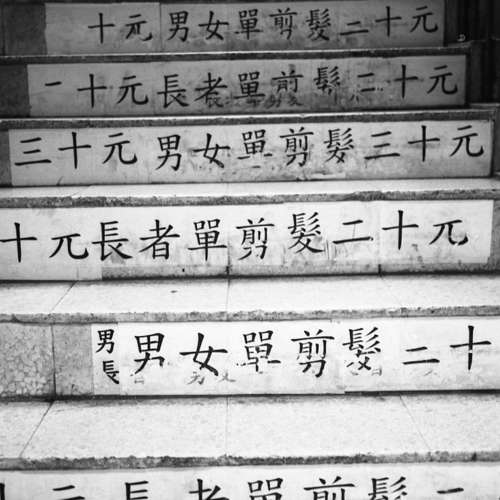 十元男女單剪髮二十元
二十元長者單剪髮二十元
三十元男女單剪髮三十元
十元長者單剪髮二十元
男長 男女單剪髮二十
二長者單剪髮二